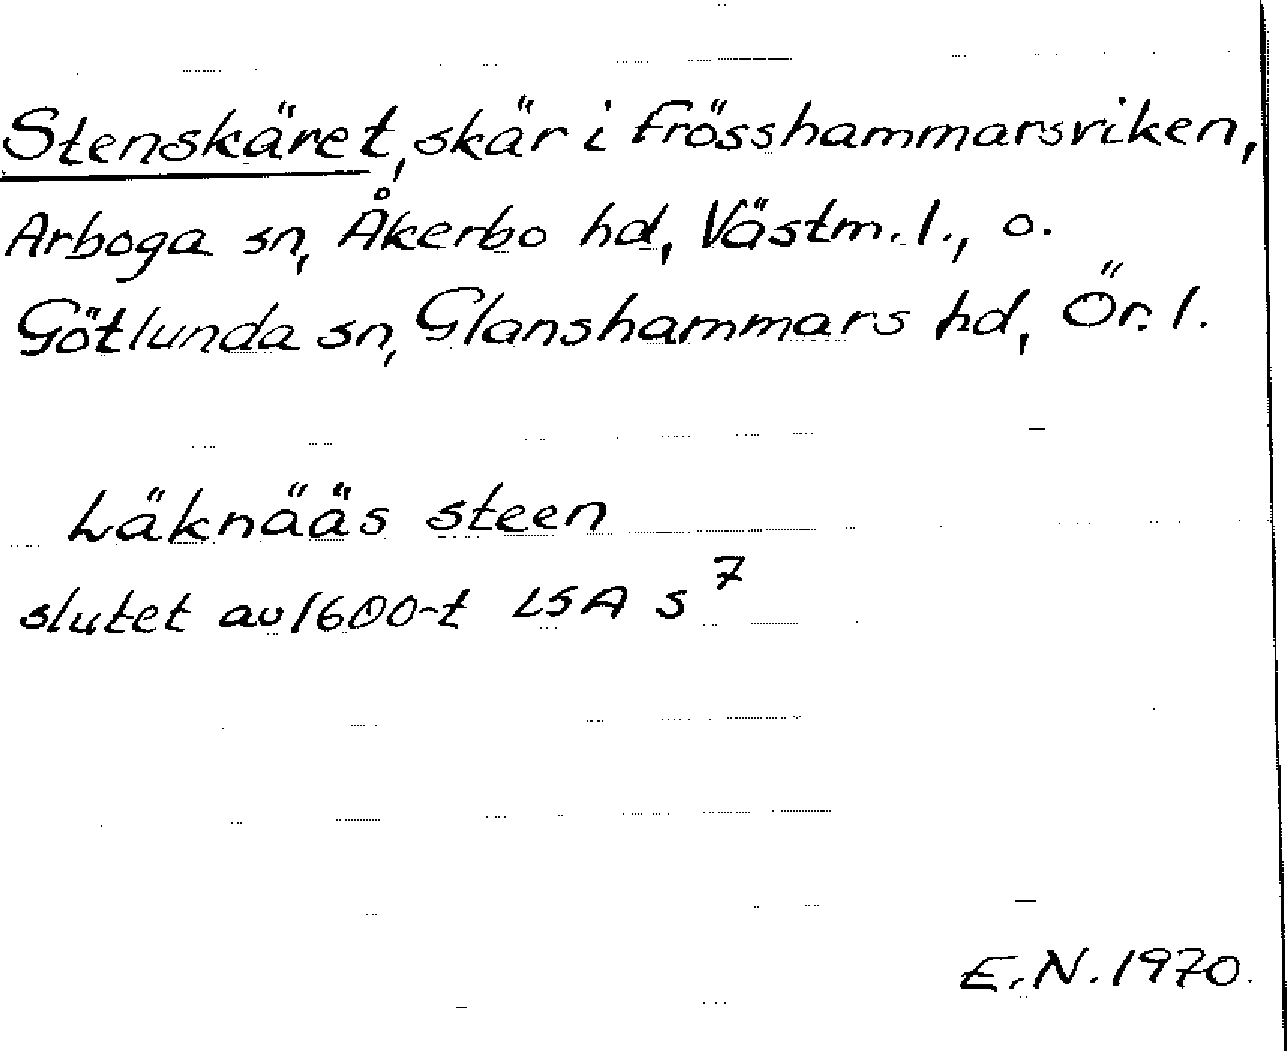 Stenskäret, skär i Frösshammarsviken,
Arboga sn, Åkerbo hd, Västm. l., o.
Götlunda sn, Glanshammars hd, Ör. l.
Läknääs steen
slutet av 1600-t LSA S 7
E.N. 1970.